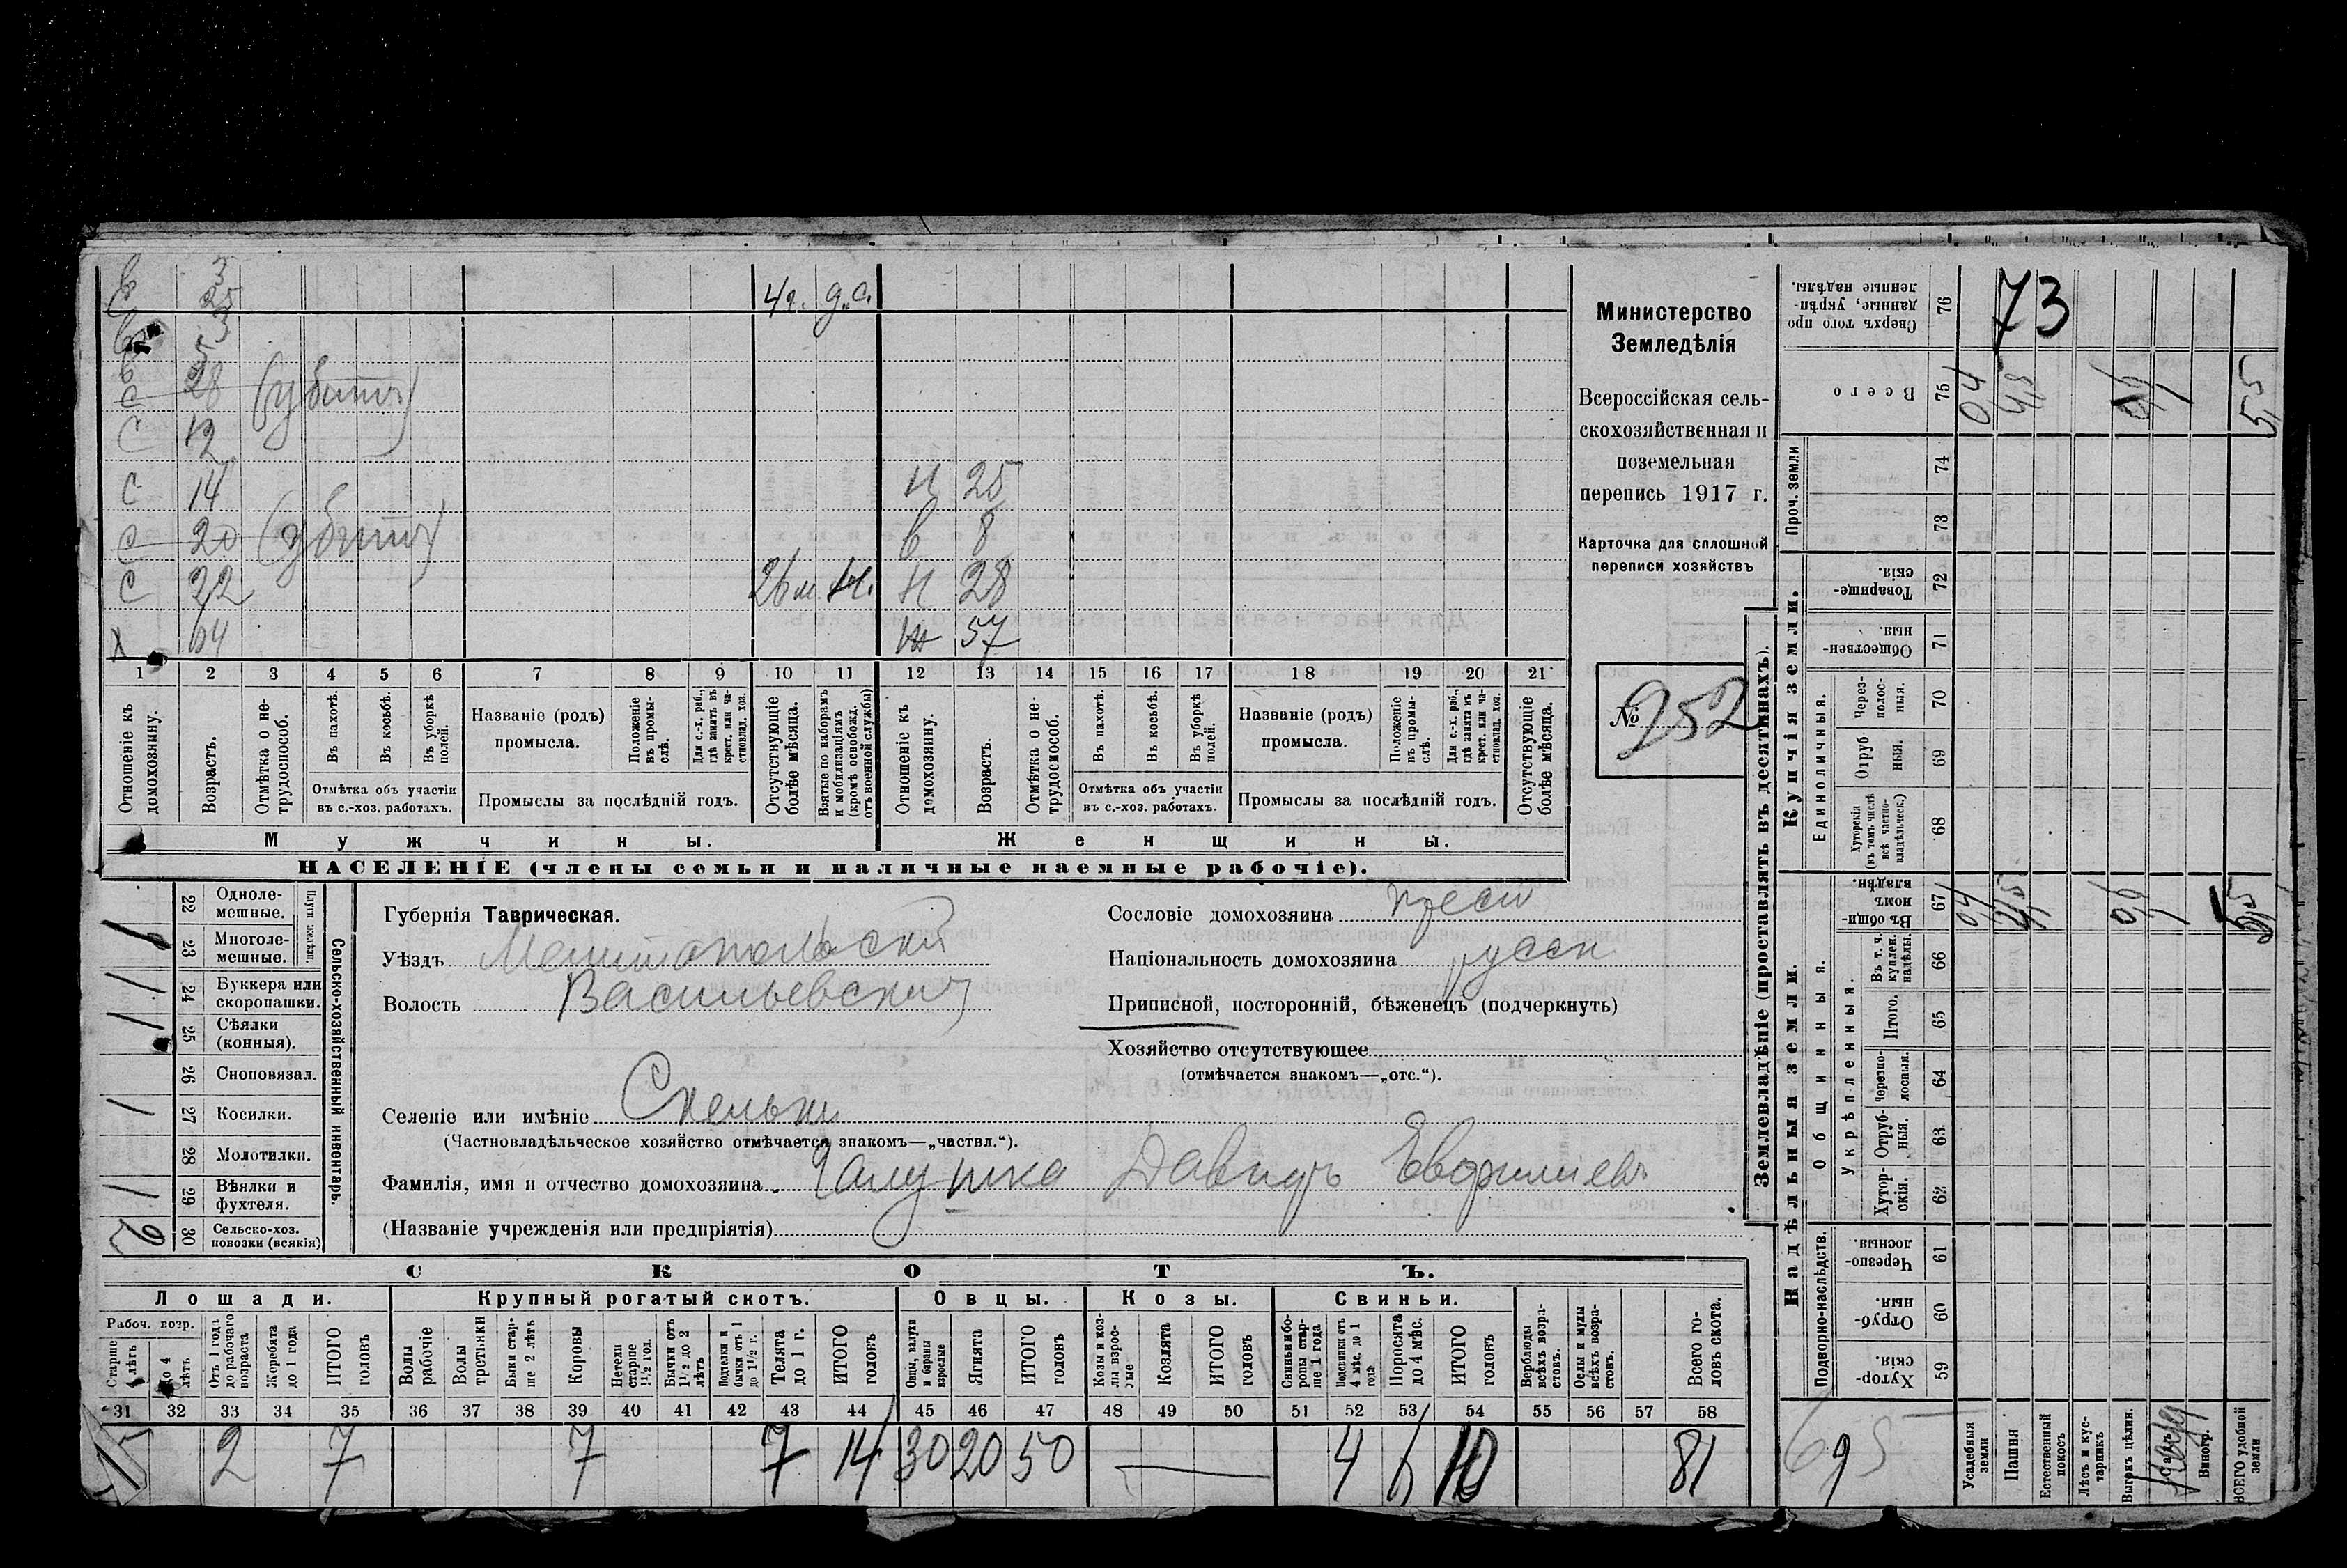 в 3
с 25 4 г. д.с.
в 3
в 5
с 28 (убитъ)
с 12
с 14 н 25
с 20 (убитъ) в 8
с 22 26 м. н 28
х 64 ж 57
1 2 3 4 5 6 7 8 9 10 11 12 13 14 15 16 17 18 19 20 21
Отношеніе къ домохозяину.
Возрастъ.
Отмѣтка о нетрудоспособ.
Въ пахотѣ.
Въ косьбѣ.
Въ уборкѣ полей.
Отмѣтка объ участіи въ с.-хоз. работахъ.
Названіе (родъ) промысла.
Положеніе въ промыслѣ.
Для с.-х. раб., гдѣ занятъ въ крест. или частновлад. хоз.
Промыслы за послѣдній годъ.
Отсутствующіе болѣе мѣсяца.
Взятые по наборамъ и мобилизаціямъ (кромѣ освобожд. отъ военной службы)
Отношеніе къ домохозяину.
Возрастъ.
Отмѣтка о нетрудоспособ.
Въ пахотѣ.
Въ косьбѣ.
Въ уборкѣ полей.
Отмѣтка объ участіи въ с.-хоз. работахъ.
Названіе (родъ) промысла.
Положеніе въ промыслѣ.
Для с.-х. раб., гдѣ занята въ крест. или частновлад. хоз.
Промыслы за послѣдній годъ.
Отсутствующіе болѣе мѣсяца.
Мужчины. Женщины.
НАСЕЛЕНІЕ (члены семьи и наличные наемные рабочіе).
Министерство
Земледѣлія
Всероссійская сель-
скохозяйственная и
поземельная
перепись 1917 г.
Карточка для сплошной
переписи хозяйствъ
№ 252
Сельско-хозяйственный инвентарь.
Плуги желѣзн.
22 Однолемешные.
23 Многолемешные. 1
24 Буккера или скоропашки. 1
25 Сѣялки (конныя). 1
26 Сноповязал.
27 Косилки. 1
28 Молотилки.
29 Вѣялки и фухтеля. 1
30 Сельско-хоз. повозки (всякія) 2
Губернія Таврическая.
Уѣздъ Мелитопольскій
Волость Васильевская
Селеніе или имѣніе Скельки
(Частновладѣльческое хозяйство отмѣчается знакомъ—„частвл.“).
Фамилія, имя и отчество домохозяина Галушка Давидъ Евфиміевъ
(Названіе учрежденія или предпріятія)
Сословіе домохозяина крест
Національность домохозяина русск
Приписной, посторонній, бѣженецъ (подчеркнуть)
Хозяйство отсутствующее
(отмѣчается знакомъ—„отс.“).
СКОТЪ.
Лошади. Крупный рогатый скотъ. Овцы. Козы. Свиньи.
Рабоч. возр.
Старше 4 лѣтъ
До 4 лѣтъ
Отъ 1 года до рабочаго возраста
Жеребята до 1 года
ИТОГО головъ
Волы рабочіе
Волы третьяки
Быки старше 2 лѣтъ
Коровы
Нетели старше 1½ год.
Бычки отъ 1½ до 2 лѣтъ
Подтелки и бычки отъ 1 до 1½ г.
Телята до 1 г.
ИТОГО головъ
Овцы, валухи и бараны взрослые
Ягнята
ИТОГО головъ
Козы и козлы взрослые
Козлята
ИТОГО головъ
Свиньи и боровы старше 1 года
Подсвинки отъ 4 мѣс. до 1 года
Поросята до 4 мѣс.
ИТОГО головъ
Верблюды всѣхъ возрастовъ.
Ослы и мулы всѣхъ возрастовъ.
Всего головъ скота.
31 32 33 34 35 36 37 38 39 40 41 42 43 44 45 46 47 48 49 50 51 52 53 54 55 56 57 58
5 2 7 7 7 14 30 20 50 — 4 6 10 81
Землевладѣніе (проставлять въ десятинахъ).
Сверхъ того проданные, укрѣпленные надѣлы. 76 73
Всего 75 04 4,5 0,6 5,5
Проч. земли
74
73
Купчія земли.
Товарищескія. 72
Общественныя. 71
Единоличныя.
Черезполосныя. 70
Отрубныя. 69
Хуторскія (въ томъ числѣ всѣ частновладѣльческ.) 68
Надѣльныя земли.
Общинныя.
Въ общинномъ владѣн. 67 0,4 4,5 0,6 5,5
Укрѣпленныя.
Въ т. ч. куплен. надѣлы. 66
Итого. 65
Черезполосныя. 64
Отрубныя. 63
Хуторскія. 62
Подворно-наслѣдств.
Черезполосныя. 61
Отрубныя. 60
Хуторскія. 59
695
Усадебныя земли
Пашня
Естественный покосъ
Лѣсъ и кустарникъ
Выгонъ цѣлин.
Виногр.
ВСЕГО удобной земли